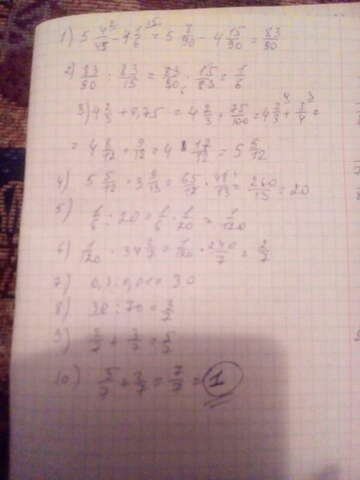 1) 5 4/45 - 4 1/6 = 5 8/90 - 4 15/90 = 83/90
2) 83/90 : 83/15 = 83/90 · 15/83 = 1/6
3) 4 2/3 + 0,75 = 4 2/3 + 75/100 = 4 2/3 + 3/4 =
= 4 8/12 + 9/12 = 4 17/12 = 5 5/12
4) 5 5/12 · 3 9/13 = 65/12 · 48/13 = 260/13 = 20
5) 1/6 : 20 = 1/6 · 1/20 = 1/120
6) 1/120 · 34 2/7 = 1/120 · 240/7 = 2/7
7) 30
8) 30 :
9)
10) 5/7 + 2/7 = 7/7 = 1